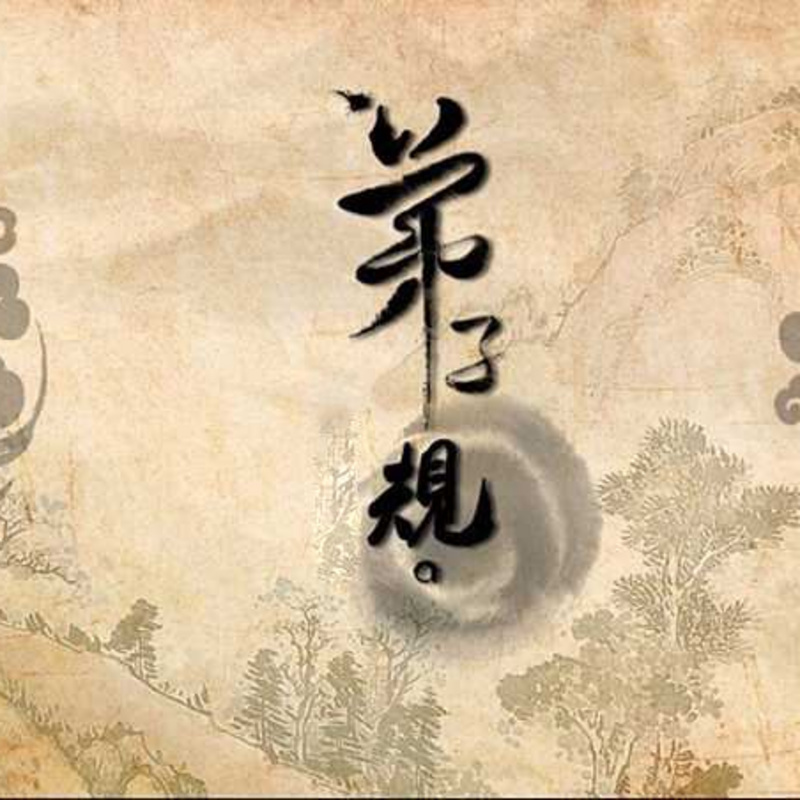 弟子規。